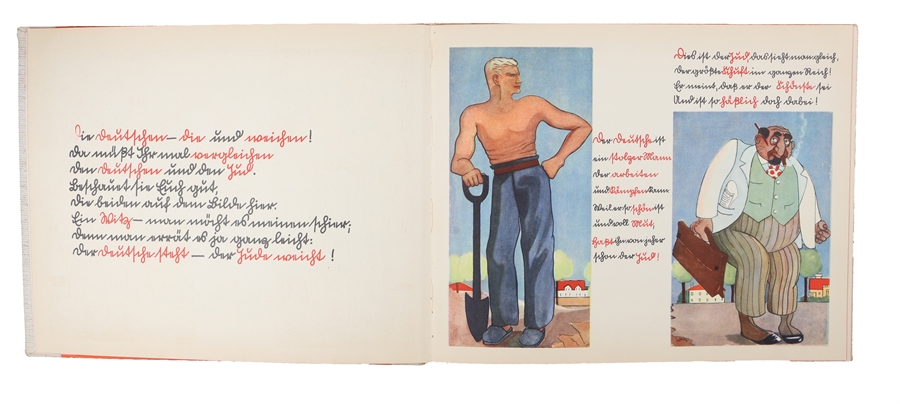 Die Deutschen – die und weichen!
Da müßt Ihr mal vergleichen
Den Deutschen und den Jud.
Beschauet sie Euch gut,
Die beiden auf dem Bilde hier.
Ein Witz – man möcht es meinen schier;
Denn man errät es ja ganz leicht:
Der Deutsche steht – der Jude weicht!
Der Deutsche ist
ein stolzer Mann
der arbeiten
und kämpfen kann.
Weil er so schön ist
und voll Mut,
Haßt ihn von jeher
schon der Jud!
Dies ist der Jud, das sieht man gleich,
Der größte Schuft im ganzen Reich!
Er meint, daß er der Schönste sei
Und ist so häßlich doch dabei!